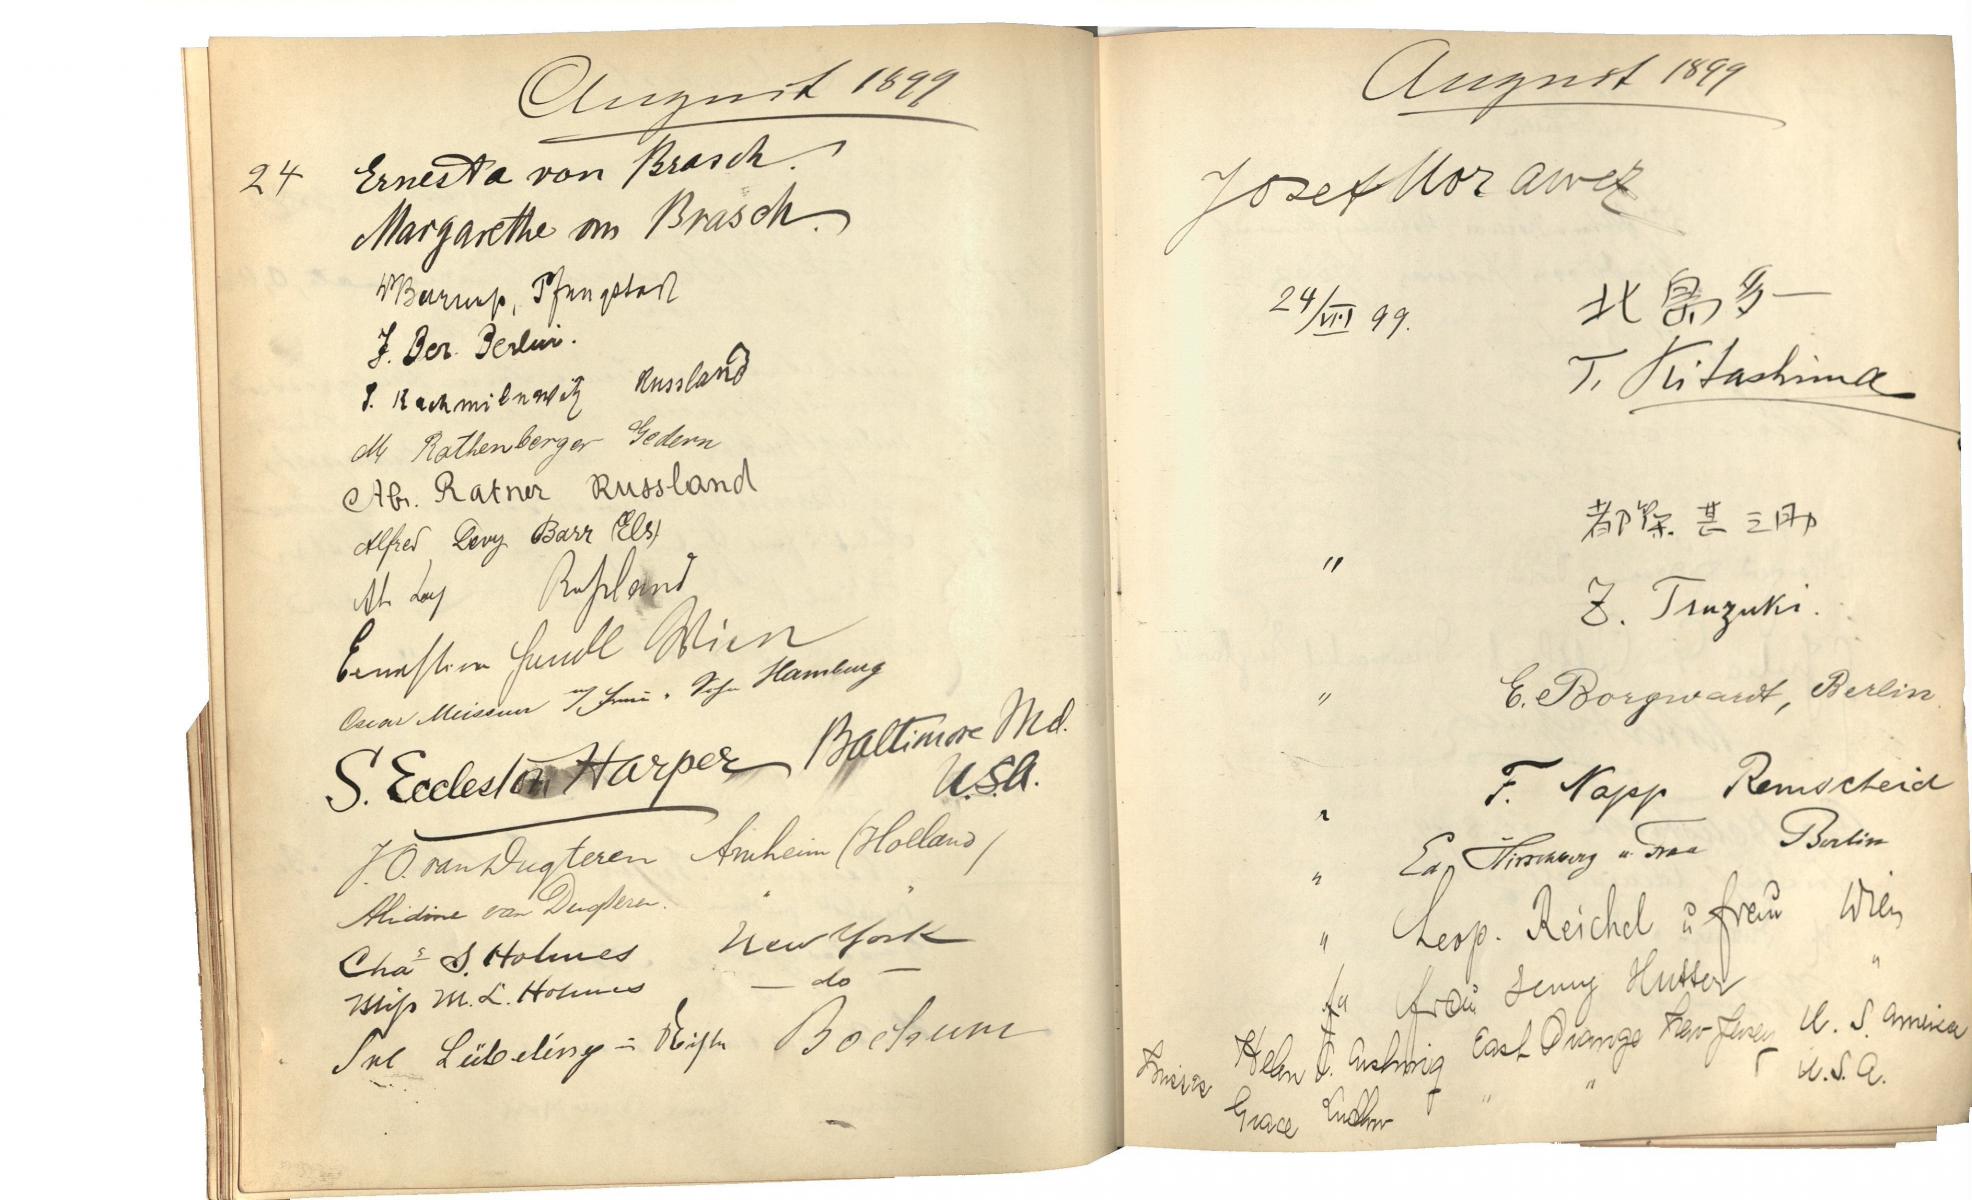 August 1899
24 Ernesta von Brasch.
Margarethe von Brasch.
W Borup, Pfungstadt
J. Ber. Berlin.
Russland
M Rothenberger Gedern
Abr. Ratner Russland
Alfred Levy Barr (Els)
Rußland
Ernestine Wien
Oscar Meissner Hamburg
S. Eccleston Harper Baltimore Md.
U.S.A.
J. O. van Dugteren Arnheim (Holland)
Alidine van Dugteren. " "
Chas S. Holmes New York
Miss M. L. Holmes — do —
Bochum
August 1899
Josef Morawez
24/VIII 99. 北島多一
T. Kitashima
都築甚之助
" Z. Tsuzuki.
" E. Borgwardt, Berlin.
" F. Napp Remscheid
" Ed. Hirschberg u. Frau Berlin
" Leop. Reichel u frau Wien
frau Jenny Hutter "
Misses Helen East Orange New Jersey U. S. America
Grace " " U.S.A.